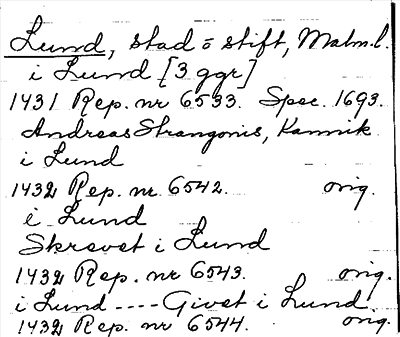 Lund, stad o stift, Malm. l.
i Lund [3 ggr]
1431 Rep. nr 6533. Spec. 1693.
Andreas Strangonis, Kannik
i Lund
1432 Rep. nr 6542. orig.
i Lund
Skrevet i Lund
1432 Rep. nr 6543. orig.
i Lund ---- Givet i Lund.
1432 Rep. nr 6544. orig.